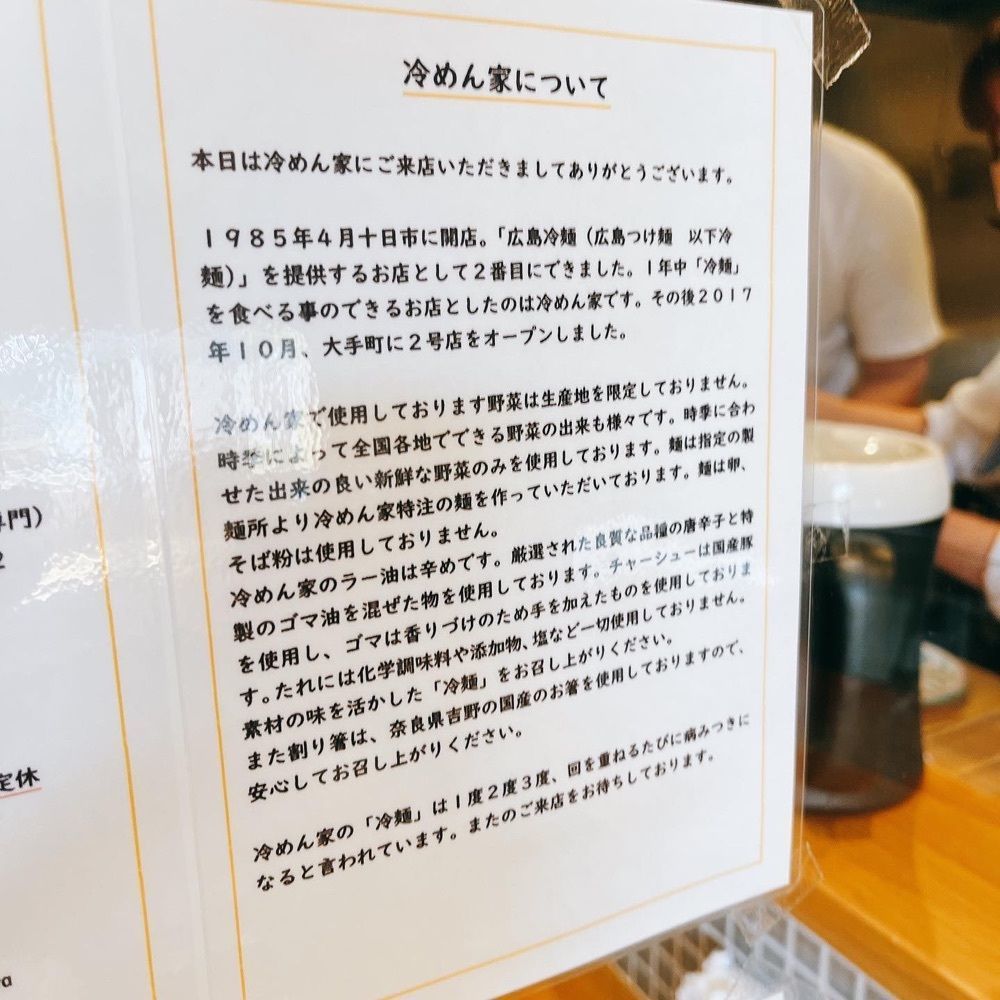 冷めん家について
本日は冷めん家にご来店いただきましてありがとうございます。
1985年4月十日市に開店。「広島冷麺（広島つけ麺　以下冷
麺）」を提供するお店として2番目にできました。1年中「冷麺」
を食べる事のできるお店としたのは冷めん家です。その後2017
年10月、大手町に2号店をオープンしました。
冷めん家で使用しております野菜は生産地を限定しておりません。
時季によって全国各地でできる野菜の出来も様々です。時季に合わ
せた出来の良い新鮮な野菜のみを使用しております。麺は指定の製
麺所より冷めん家特注の麺を作っていただいております。麺は卵、
そば粉は使用しておりません。
冷めん家のラー油は辛めです。厳選された良質な品種の唐辛子と特
製のゴマ油を混ぜた物を使用しております。チャーシューは国産豚
を使用し、ゴマは香りづけのため手を加えたものを使用しておりま
す。たれには化学調味料や添加物、塩など一切使用しておりません。
素材の味を活かした「冷麺」をお召し上がりください。
また割り箸は、奈良県吉野の国産のお箸を使用しておりますので、
安心してお召し上がりください。
冷めん家の「冷麺」は1度2度3度、回を重ねるたびに病みつきに
なると言われています。またのご来店をお待ちしております。
門）
2
定休